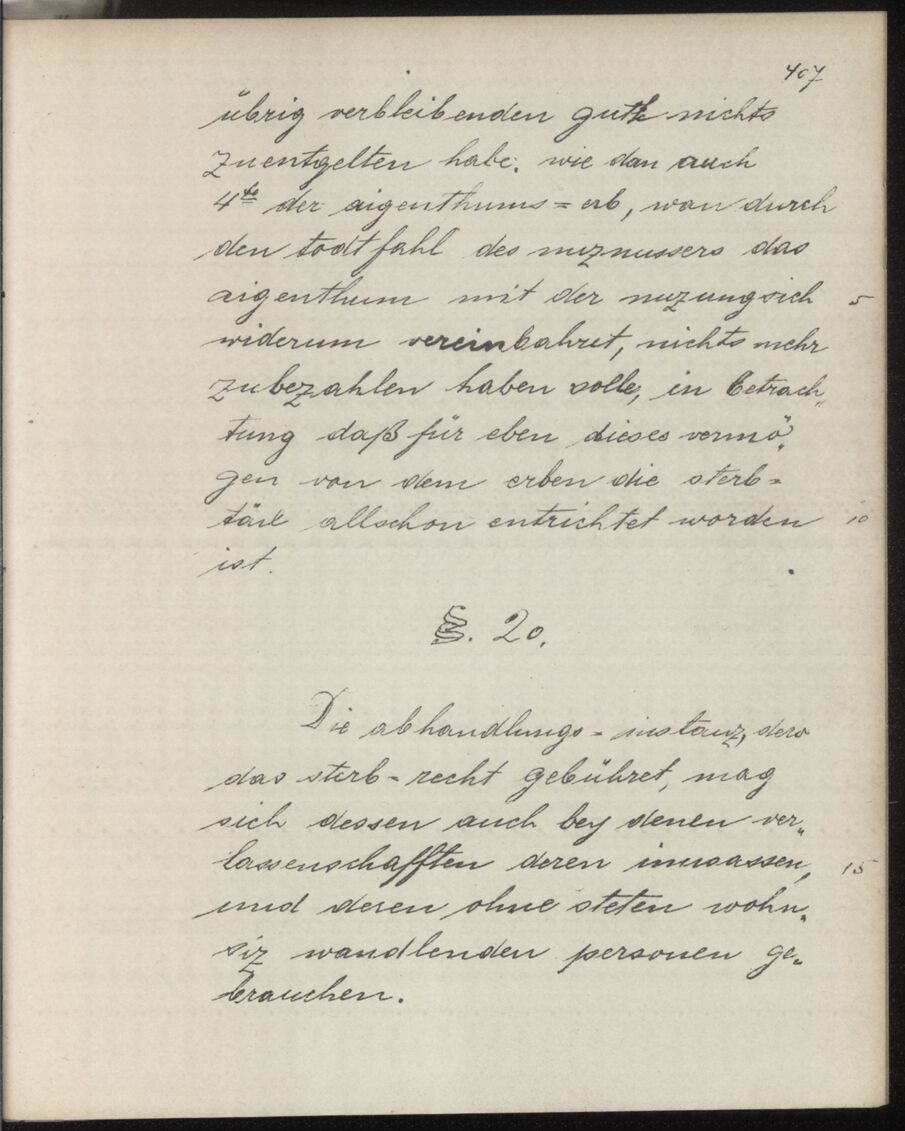 407
übrig verbleibenden guth nichts
zuentgelten habe. wie dan auch
4to der aigenthums=erb, wan durch
den todtfahl des nuznussers das
aigenthum mit der nuzung sich 5
widerum vereinbahret, nichts mehr
zubezahlen haben solle, in betrach„
tung daß für eben dieses vermö„
gen von dem erben die sterb=
täxe allschon entrichtet worden 10
ist.
§. 20.
Die abhandlungs=instanz, dero
das sterb=recht gebühret, mag
sich dessen auch bey denen ver„
lassenschafften deren innwassen, 15
und deren ohne steten wohn„
siz wandlenden personen ge„
brauchen.